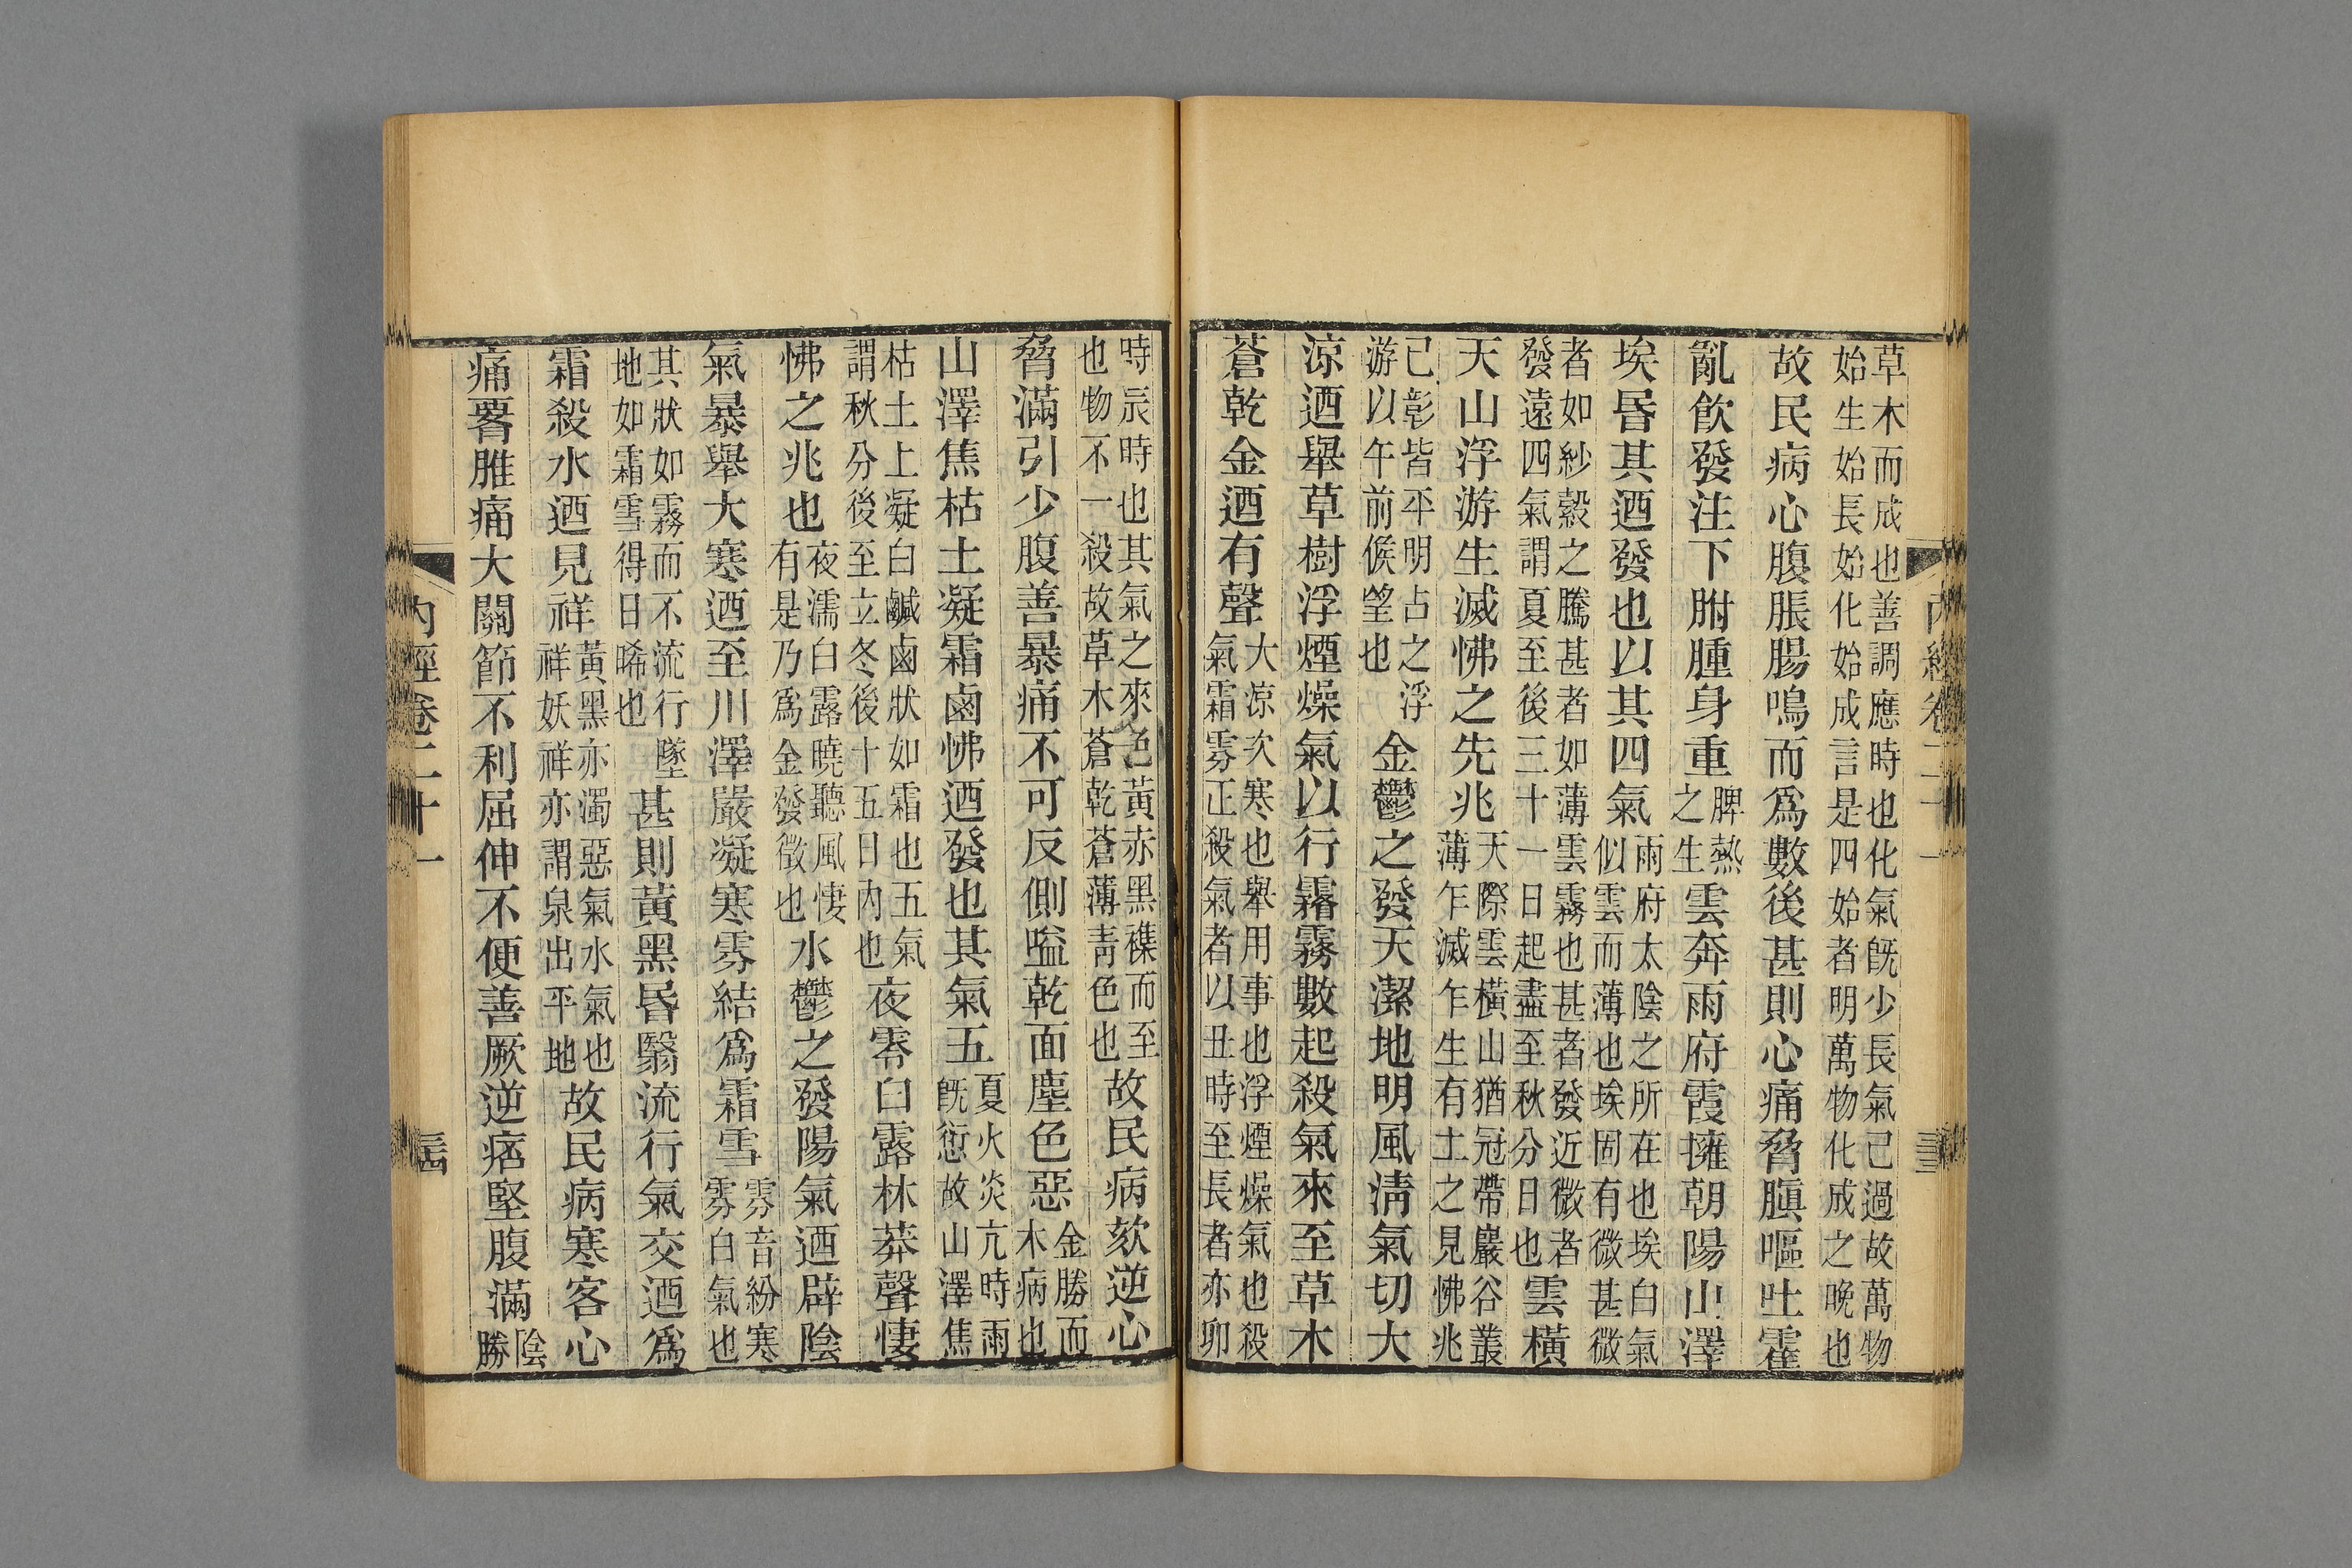 內經卷二十一
草木而成也善調應時也化氣旣少長氣已過故萬物
始生始長始化始成言是四始者明萬物化成之晚也
故民病心腹脹腸鳴而爲數後甚則心痛脅䐜嘔吐霍
亂飲發注下胕腫身重脾熱之生雲奔雨府霞擁朝陽山澤
埃昬其迺發也以其四氣雨府太陰之所在也埃白氣似雲而薄也埃固有微甚微
者如紗縠之騰甚者如薄雲霧也甚者發近微者發遠四氣謂夏至後三十一日起盡至秋分日也雲橫
天山浮游生滅怫之先兆天際雲橫山猶冠帶巖谷叢薄乍滅乍生有土之見怫兆
已彰皆平明占之浮游以午前候望也金鬱之發天潔地明風淸氣切大
涼迺舉草樹浮煙燥氣以行霿霧數起殺氣來至草木
蒼乾金迺有聲大涼次寒也舉用事也浮煙燥氣也殺氣霜雰正殺氣者以丑時至長者亦卯
時辰時也其氣之來色黃赤黑襍而至也物不一殺故草木蒼乾蒼薄靑色也故民病欬逆心
脅滿引少腹善暴痛不可反側嗌乾面塵色惡金勝而木病也
山澤焦枯土凝霜鹵怫迺發也其氣五夏火炎亢時雨旣愆故山澤焦
枯土上凝白鹹鹵狀如霜也五氣謂秋分後至立冬後十五日內也夜零白露林莽聲悽
怫之兆也夜濡白露曉聽風悽有是乃爲金發徵也水鬱之發陽氣迺辟陰
氣暴舉大寒迺至川澤嚴凝寒雰結爲霜雪雰音紛寒雰白氣也
其狀如霧而不流行墜地如霜雪得日晞也甚則黃黑昬翳流行氣交迺爲
霜殺水迺見祥黃黑亦濁惡氣水氣也祥妖祥亦謂泉出平地故民病寒客心
痛䐃脽痛大關節不利屈伸不便善厥逆痞堅腹滿陰勝
內經卷二十一